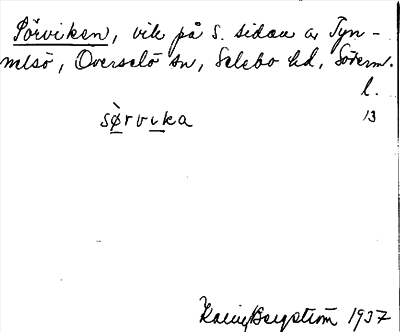 Sörviken, vik på S. sidan av Tyn-
nelsö, Överselö sn, Selebo hd, Söderm.
l.
sø̀rvika 13
Karin Bergström 1937